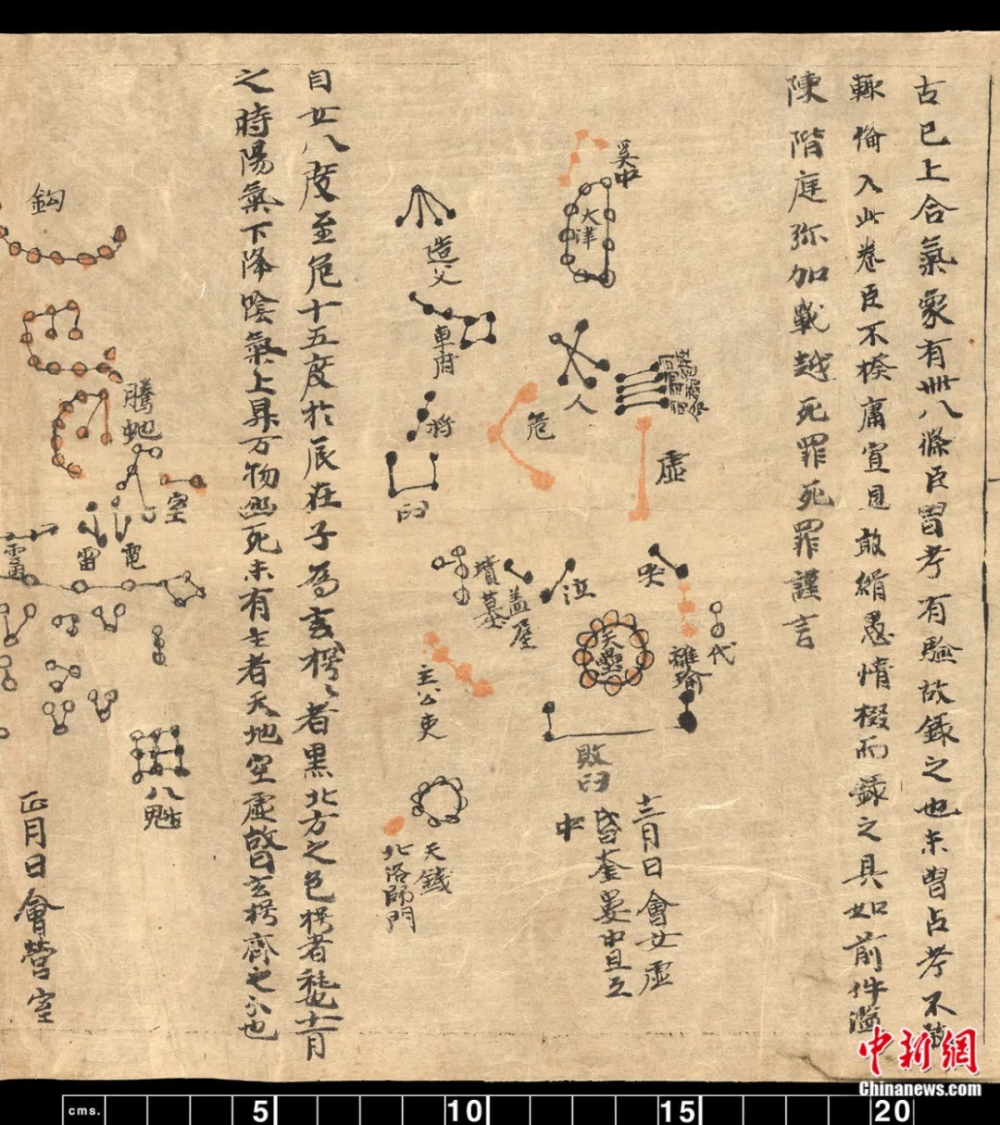 古已上合氣象有卌八條臣曾考有驗故錄之也未曾占考不
輙備入此卷臣不揆庸冥見敢緝愚情掇而錄之具如前件濫
陳階庭弥加戰越死罪死罪謹言
奚仲
天津
人
虛
危
造父
車府
将
臼
哭
泣
蓋屋
墳墓
代
離瑜
天壘
敗臼
主公吏
天錢
北落師門
十二月日會女虛
昏奎婁中旦互
中
自女八度至危十五度於辰在子為玄枵々者黑北方之色枵者耗也十一月
之時陽氣下降陰氣上昇万物幽死未有生者天地空虛故曰玄枵齊之分也
鈎
騰虵
室
電
雷
八魁
正月日會營室
中新网
Chinanews.com
cms.
5
10
15
20